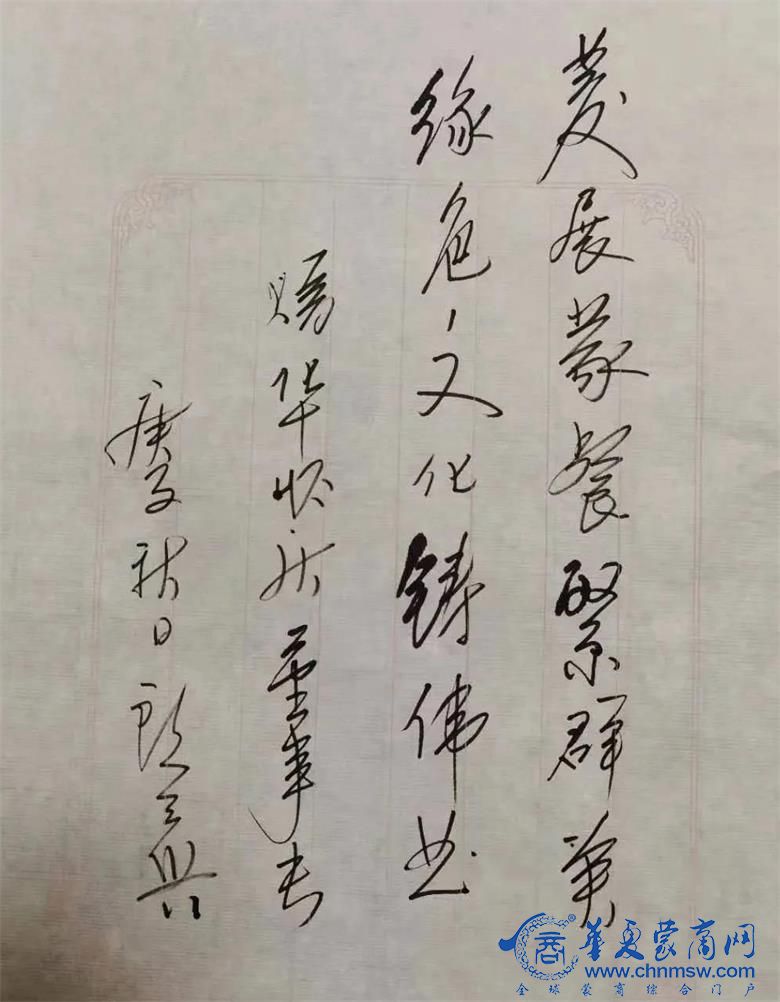 發展蒙餐群英
绿色文化铸伟业
华董事长
庚子秋日
华夏蒙商网
www.chnmsw.com
全球蒙商综合门户